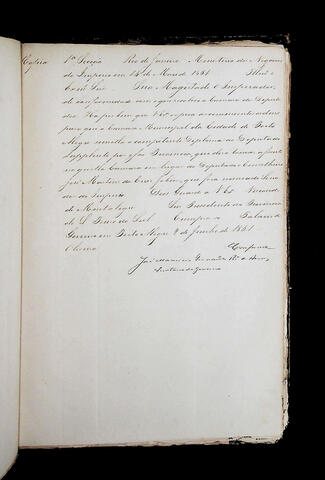 Copia 1ª Secção Rio de Janeiro Ministerio do Negocios
do Imperio em 14 de Maio de 1851 Illmo e
Exmo Snr Sua Magestade o Imperador,
de conformidade com o que a Camara de Deputa
dos Ha por bem que VEx expeça as
para que a Camara Municipal da Cidade de Porto
Alegre o competente Diploma de Deputado
Supplente por essa Provincia, que deve tomar assento
na quella Camara em lugar do Deputado Conselheiro
José Martins da Cruz Jobim, que foi nomeado Sena
dor do Imperio Deos Guarde a VEx Visconde
de Mont'alegre Snr Presidente da Provincia
de S. Pedro do Sul Cumpra-se Palacio do
Governo em Porto Alegre 2 de Junho de 1851
Conforme
José
Secretario do Governo